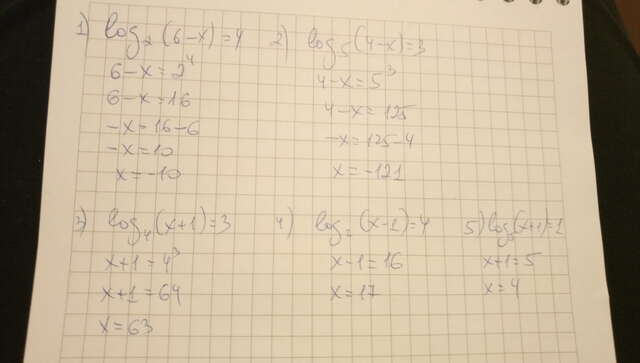 1) log₂(6-x)=4
6-x=2⁴
6-x=16
-x=16-6
-x=10
x=-10
2) log₅(4-x)=3
4-x=5³
4-x=125
-x=125-4
x=-121
3) log₄(x+1)=3
x+1=4³
x+1=64
x=63
4) log₂(x-1)=4
x-1=16
x=17
5) log₅(x+1)=1
x+1=5
x=4